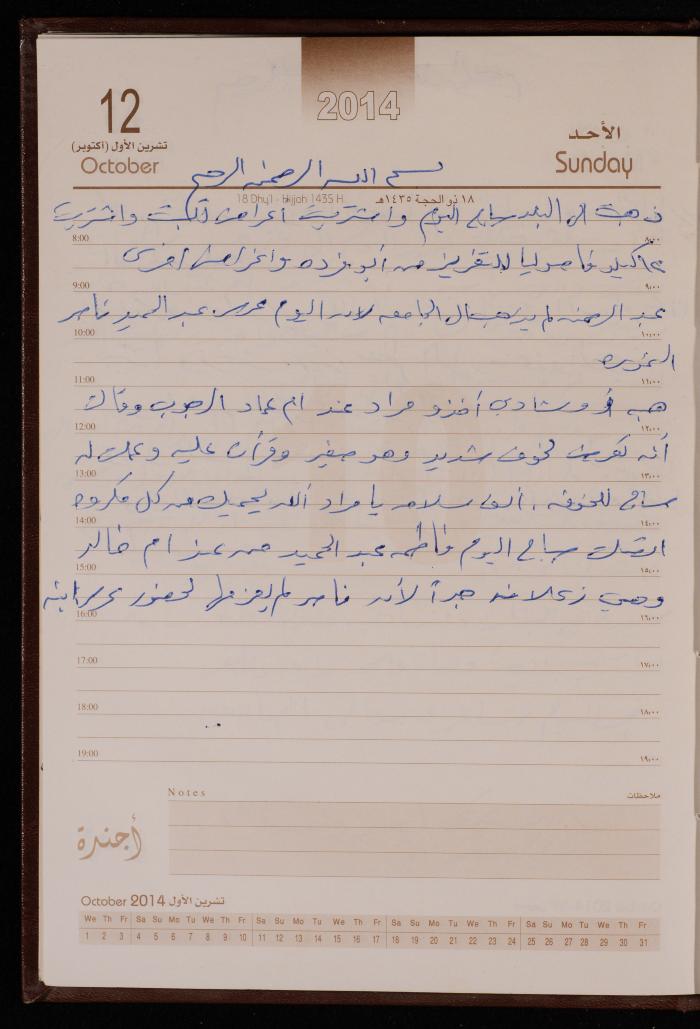 2014
12
تشرين الأول (أكتوبر)
October
الأحد
Sunday
بسم الله الرحمن الرحيم
18 Dhu'l - Hijjah 1435 H. ١٨ ذو الحجة ١٤٣٥هـ
ذهبت الى البلد صباح اليوم واشتريت أغراض للبيت واشتريت
8:00 ٨,٠٠
كيلو فاصوليا للتفريز من أبو فرده واغراض اخرى
9:00 ٩,٠٠
عبد الرحمن لم يذهب الى الجامعه لان اليوم عرس عبد الحميد ناصر
10:00 ١٠,٠٠
11:00 ١١,٠٠
هبه وشادي أخذو مراد عند ام عماد الرجوب وقالت
12:00 ١٢,٠٠
أنه تعرض لخوف شديد وهو صغير وقرأت عليه وعملت له
13:00 ١٣,٠٠
للخوفه . ألف سلامه يا مراد الله يحميك من كل مكروه
14:00 ١٤,٠٠
اتصلت صباح اليوم فاطمه عبد الحميد من عند ام خالد
15:00 ١٥,٠٠
وهي زعلانه جداً لأن ناصر لم يعزمها لحضور عرس ابنه
16:00 ١٦,٠٠
17:00 ١٧,٠٠
18:00 ١٨,٠٠
19:00 ١٩,٠٠
Notes ملاحظات
أجندة
October 2014 تشرين الأول
We Th Fr Sa Su Mo Tu We Th Fr Sa Su Mo Tu We Th Fr Sa Su Mo Tu We Th Fr Sa Su Mo Tu We Th Fr
1 2 3 4 5 6 7 8 9 10 11 12 13 14 15 16 17 18 19 20 21 22 23 24 25 26 27 28 29 30 31